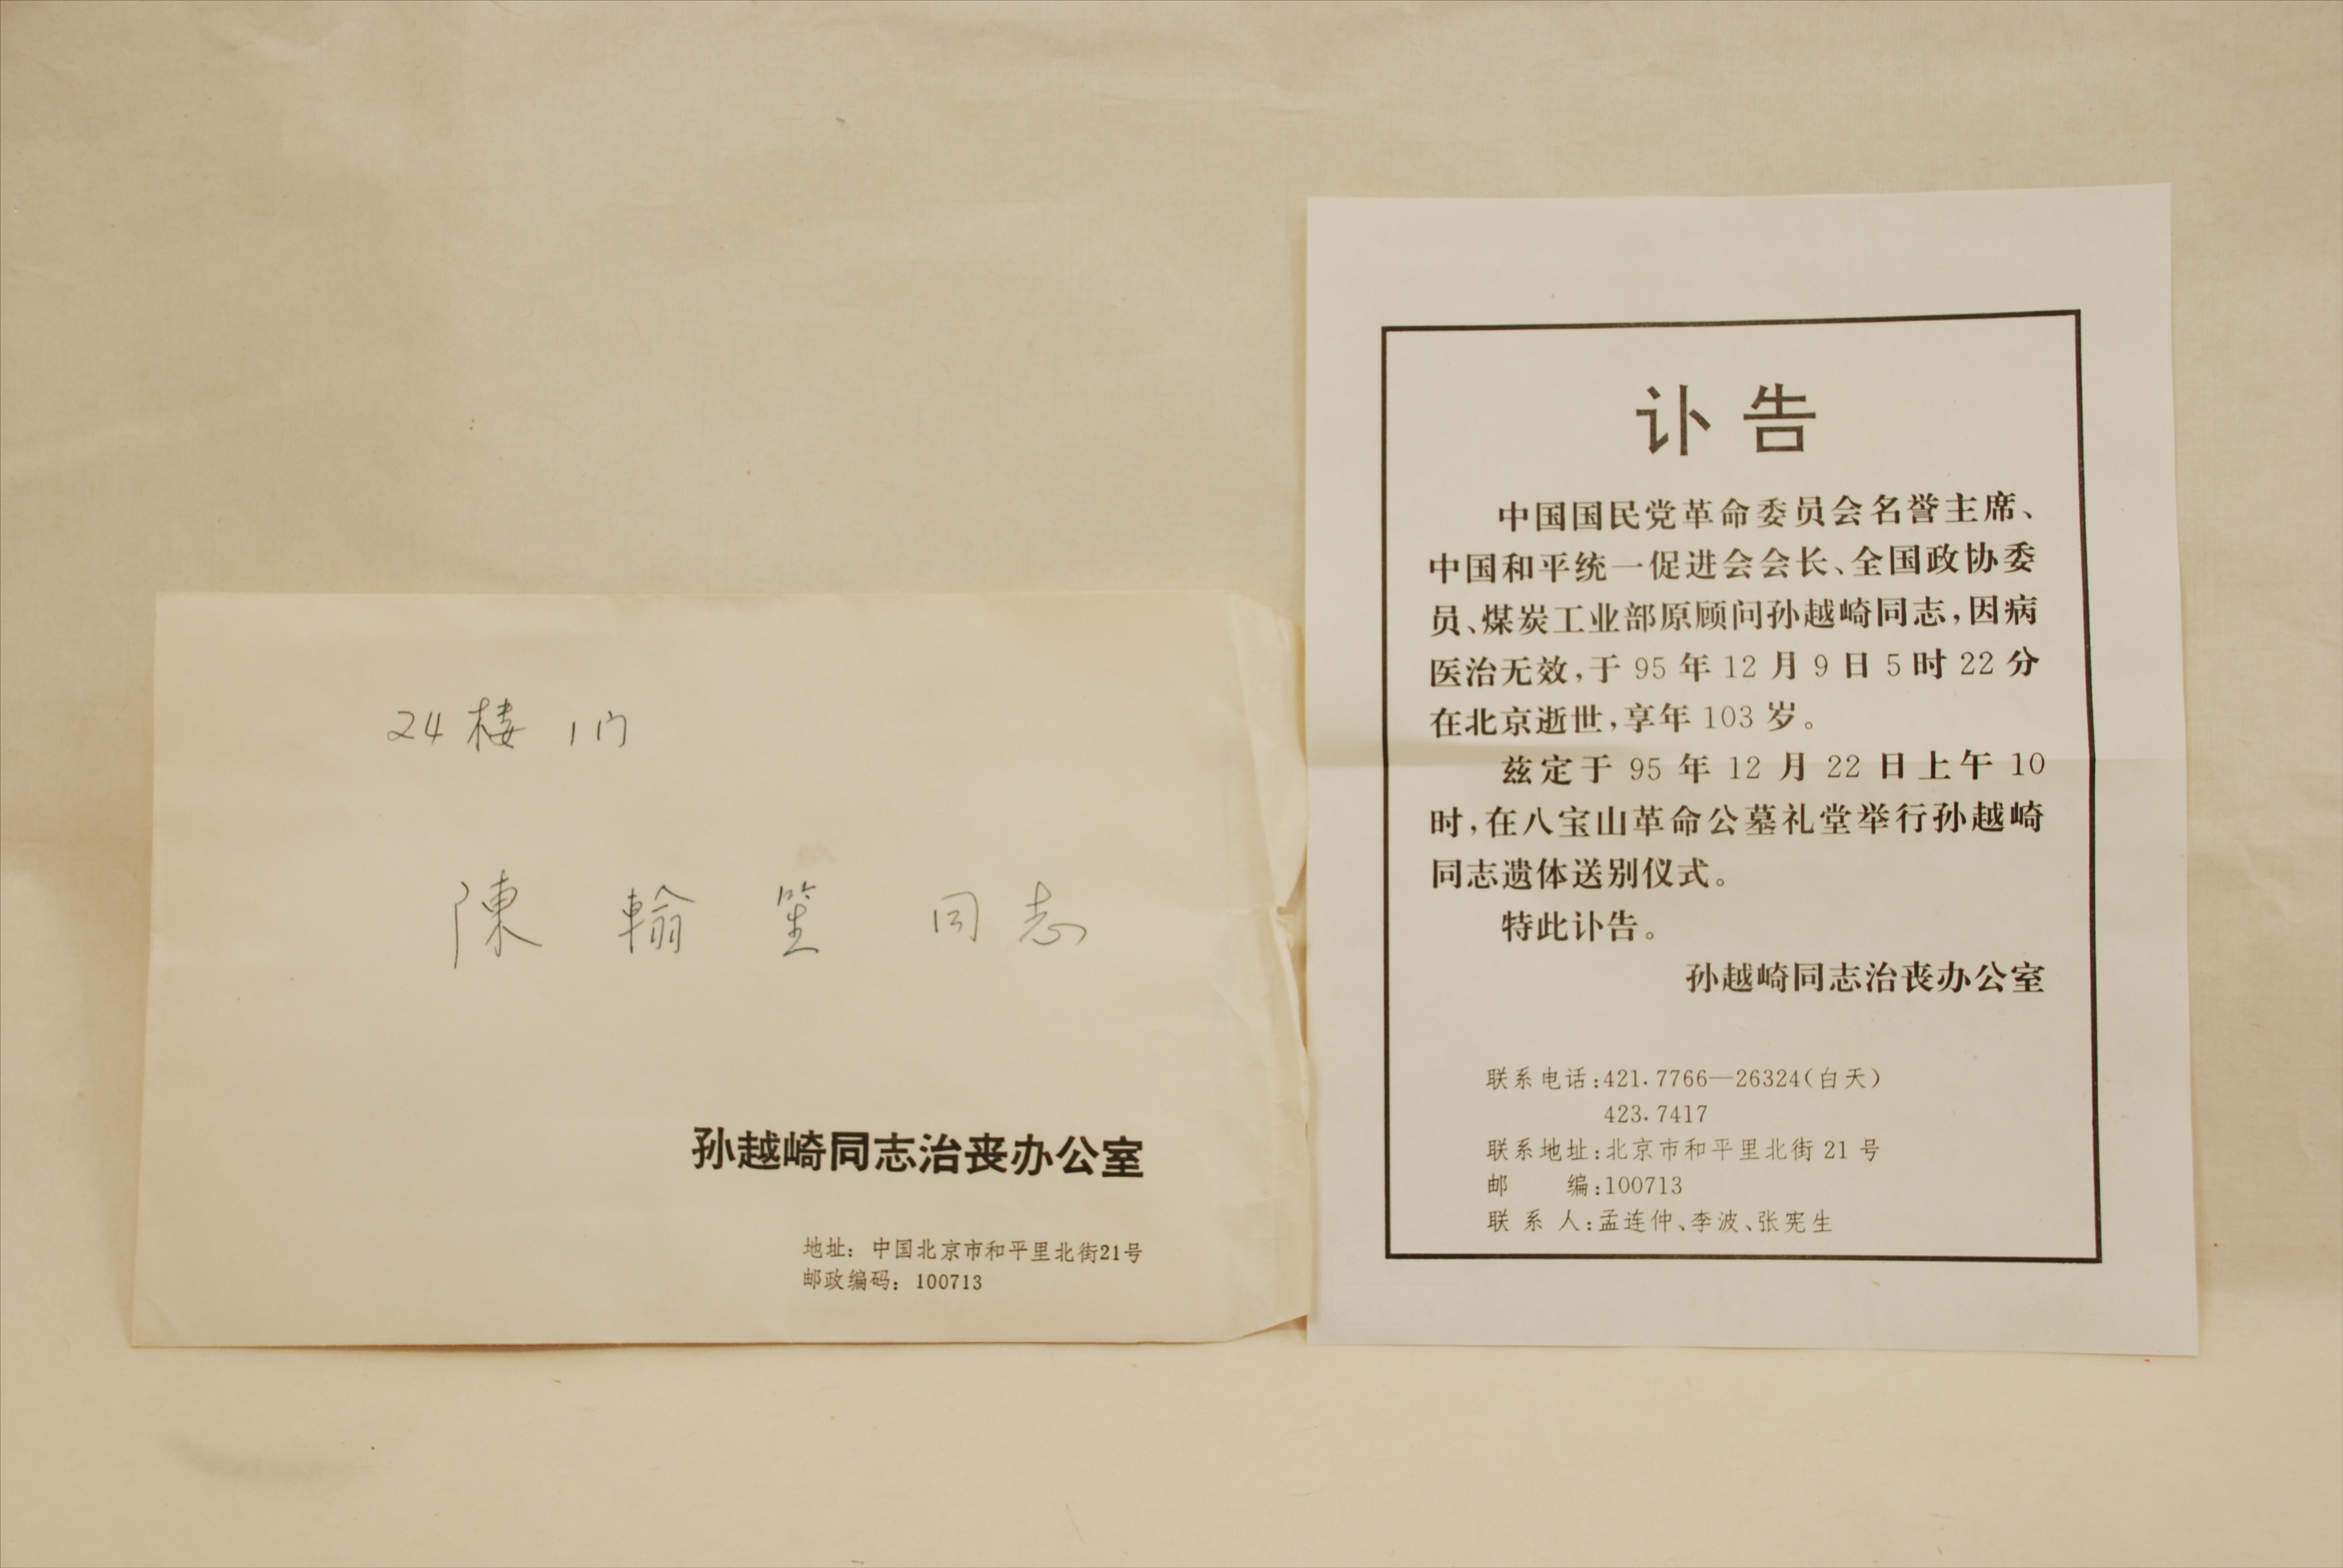 24楼 1门
陳翰笙 同志
孙越崎同志治丧办公室
地址：中国北京市和平里北街21号
邮政编码：100713
讣告
中国国民党革命委员会名誉主席、
中国和平统一促进会会长、全国政协委
员、煤炭工业部原顾问孙越崎同志，因病
医治无效，于 95 年 12 月 9 日 5 时 22 分
在北京逝世，享年 103 岁。
兹定于 95 年 12 月 22 日上午 10
时，在八宝山革命公墓礼堂举行孙越崎
同志遗体送别仪式。
特此讣告。
孙越崎同志治丧办公室
联系电话：421.7766—26324（白天）
423.7417
联系地址：北京市和平里北街 21 号
邮 编：100713
联系人：孟连仲、李波、张宪生